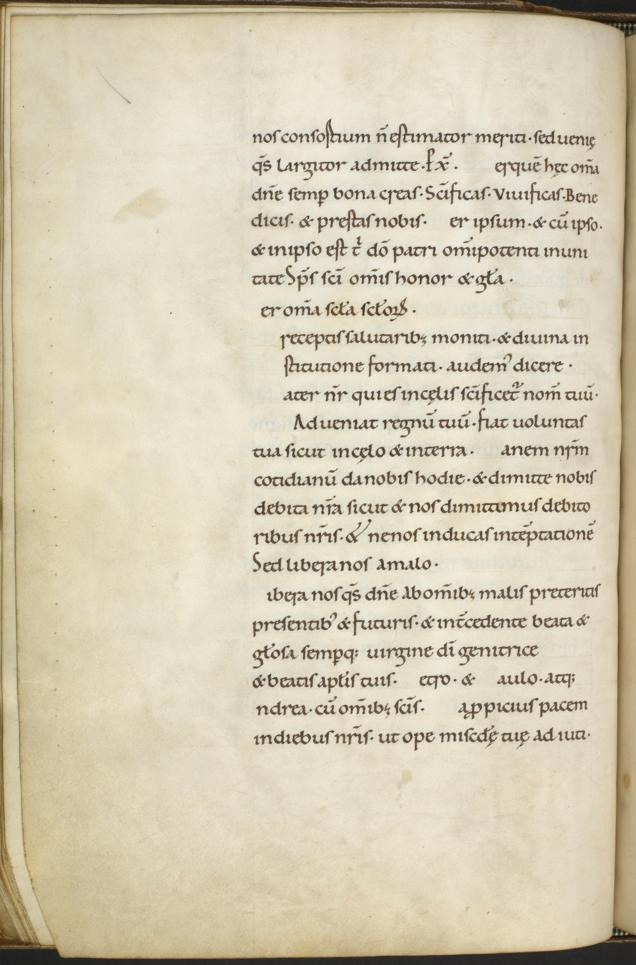 nos consortium n̄ estimator meriti· sed uenię
q̄s largitor admitte· ꝑ x̄·   er quē hęc om̄a
dn̄e semꝑ bona creas· Sc̄ificas· Viuificas· Bene
dicis· & prestas nobis·   er ipsum· & cū ipso·
& in ipso est t̄ dō patri om̄ipotenti in uni
tate Sp̄s sc̄i om̄is honor & gła·
er om̄a scła scłoꝝ·
receptis salutarib; moniti· & diuina in
stitutione formati· audem᾽ dicere·
ater nr̄ qui es in cęlis sc̄ificet᷑ nom̄ tuū·
Adueniat regnū tuū· fiat uoluntas
tua sicut in cęlo & in terra·   anem nr̄m
cotidianū da nobis hodie· & dimitte nobis
debita nr̄a sicut & nos dimittimus debito
ribus nr̄is· & ne nos inducas in tēptationē
Sed libera nos a malo·
ibera nos q̄s dn̄e ab om̄ib; malis preteritis
presentib᾽ & futuris· & int̄cedente beata &
głosa sempq; uirgine dī genitrice
& beatis apłis tuis·   etro· &   aulo· atq;
ndrea· cū om̄ib; sc̄is·   a ꝓpicius pacem
in diebus nr̄is· ut ope misc̄dę tuę adiuti·